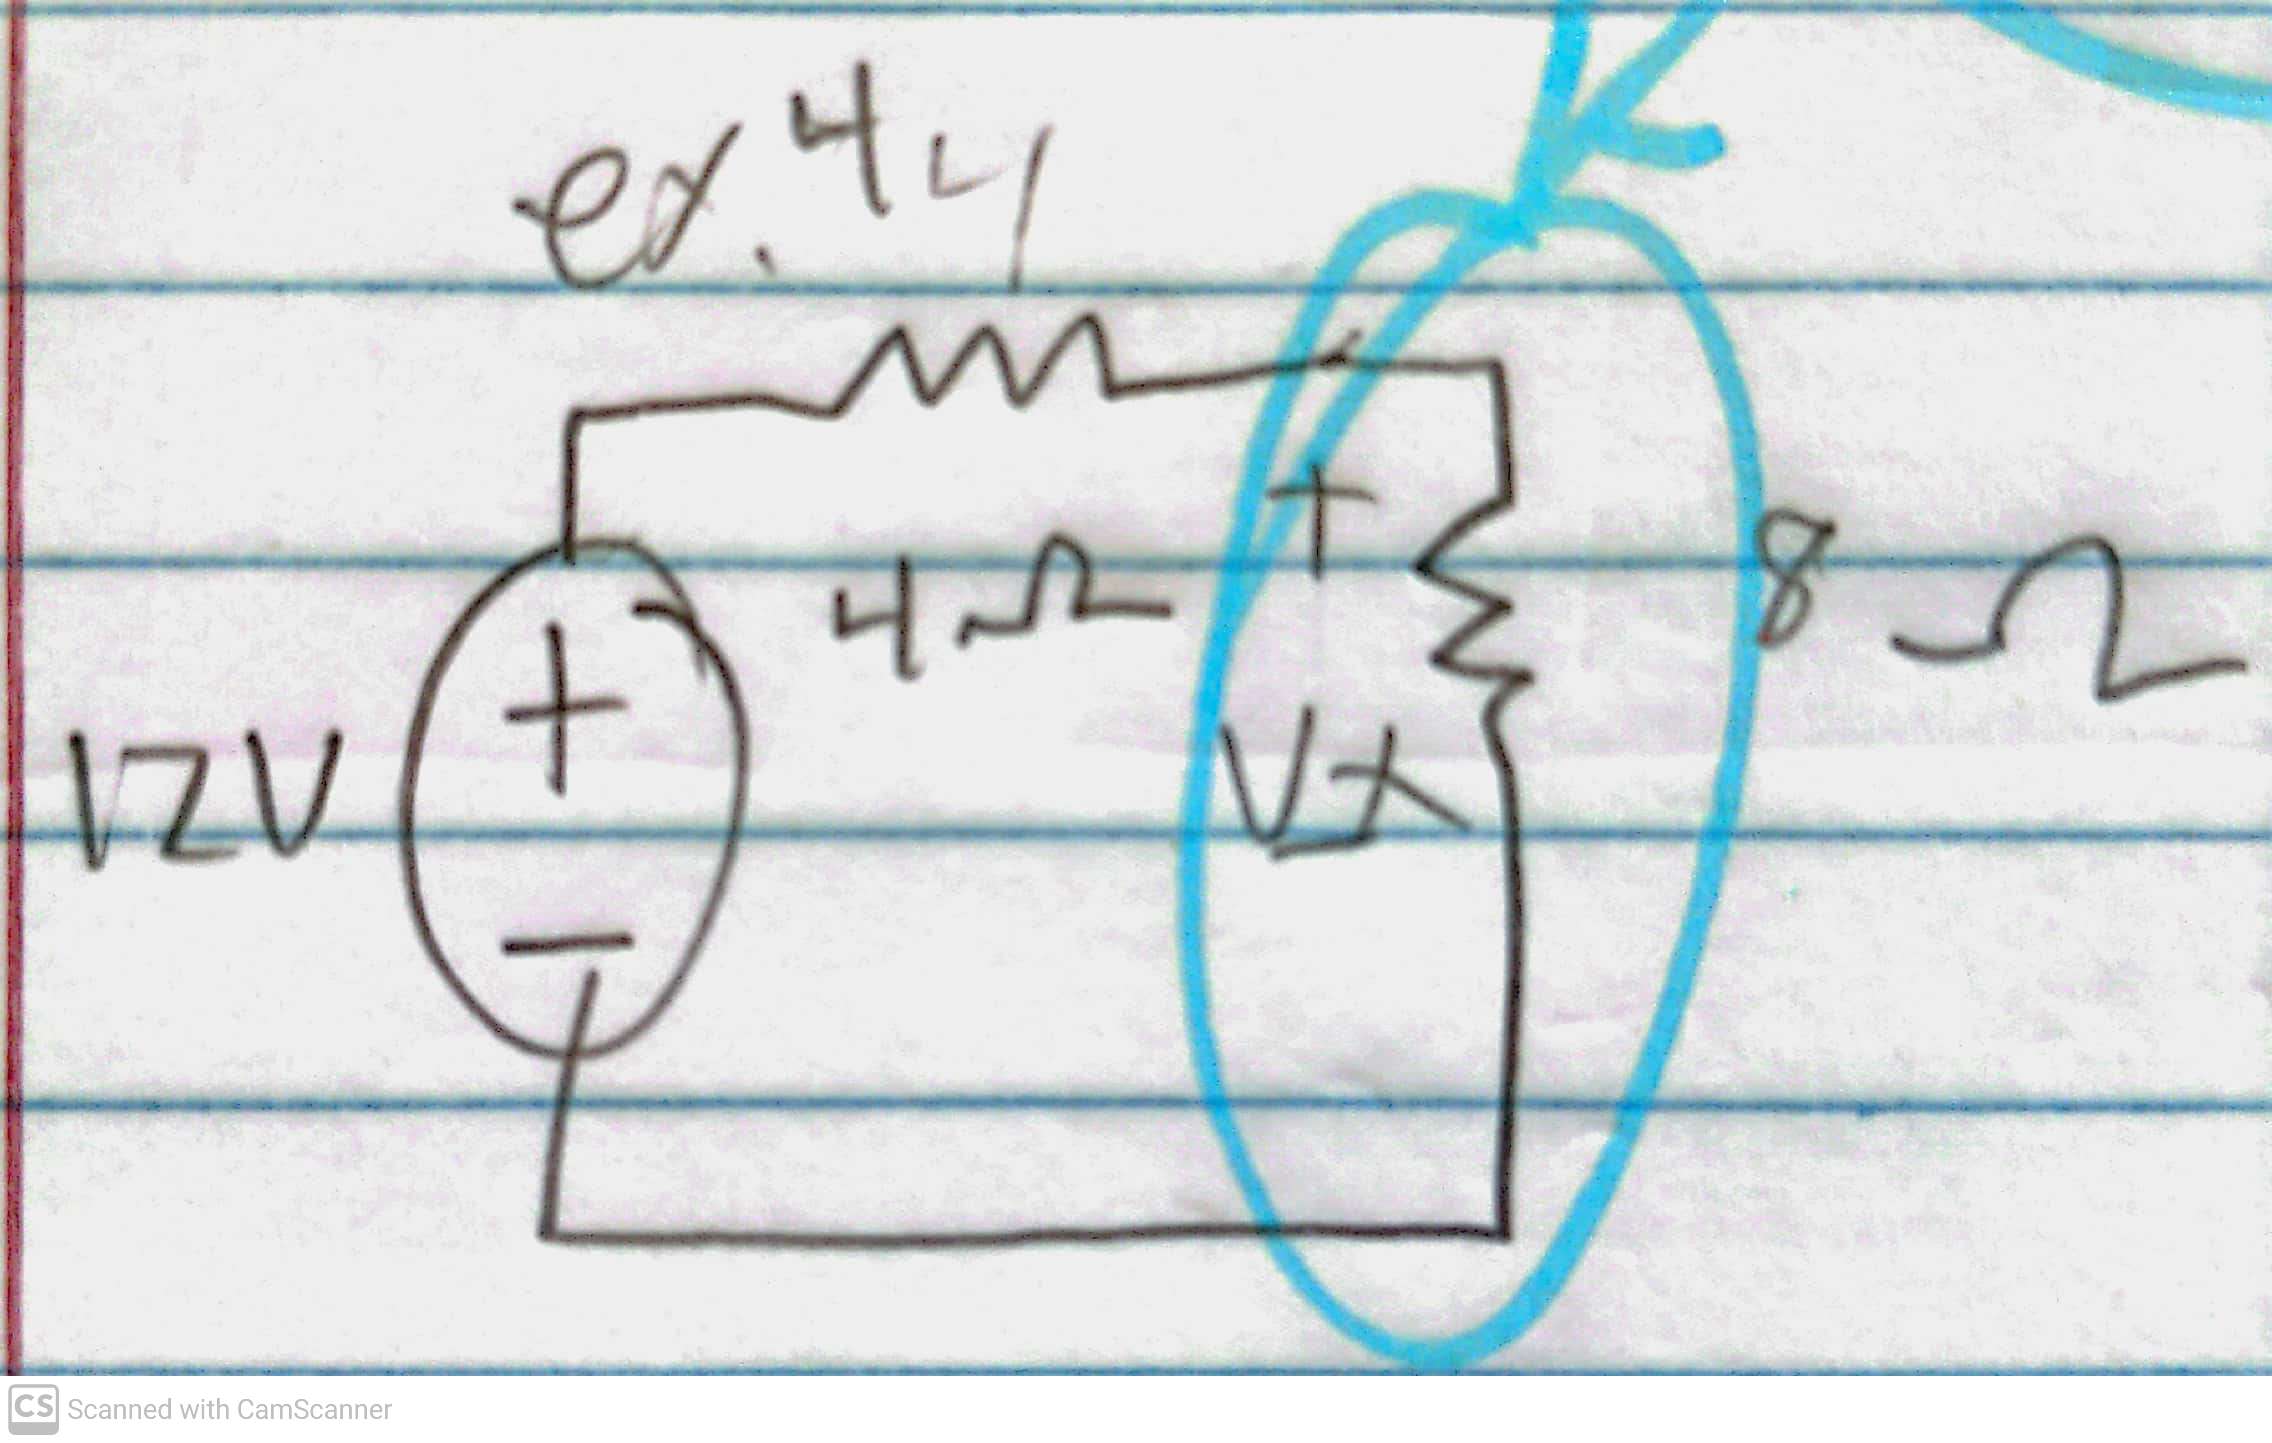 ex. 4
4Ω
+
8 Ω
+
12V
Vx
−
CS Scanned with CamScanner